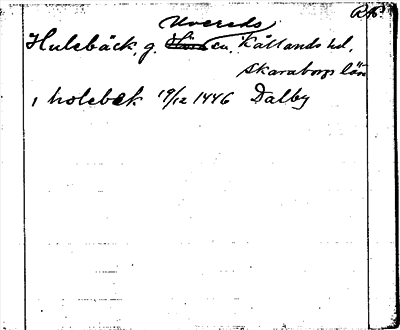 RAP.
Uvereds
Hulebäck, g. sn. Kållands hd,
Skaraborgs län
, holebek 19/12 1446 Dalby